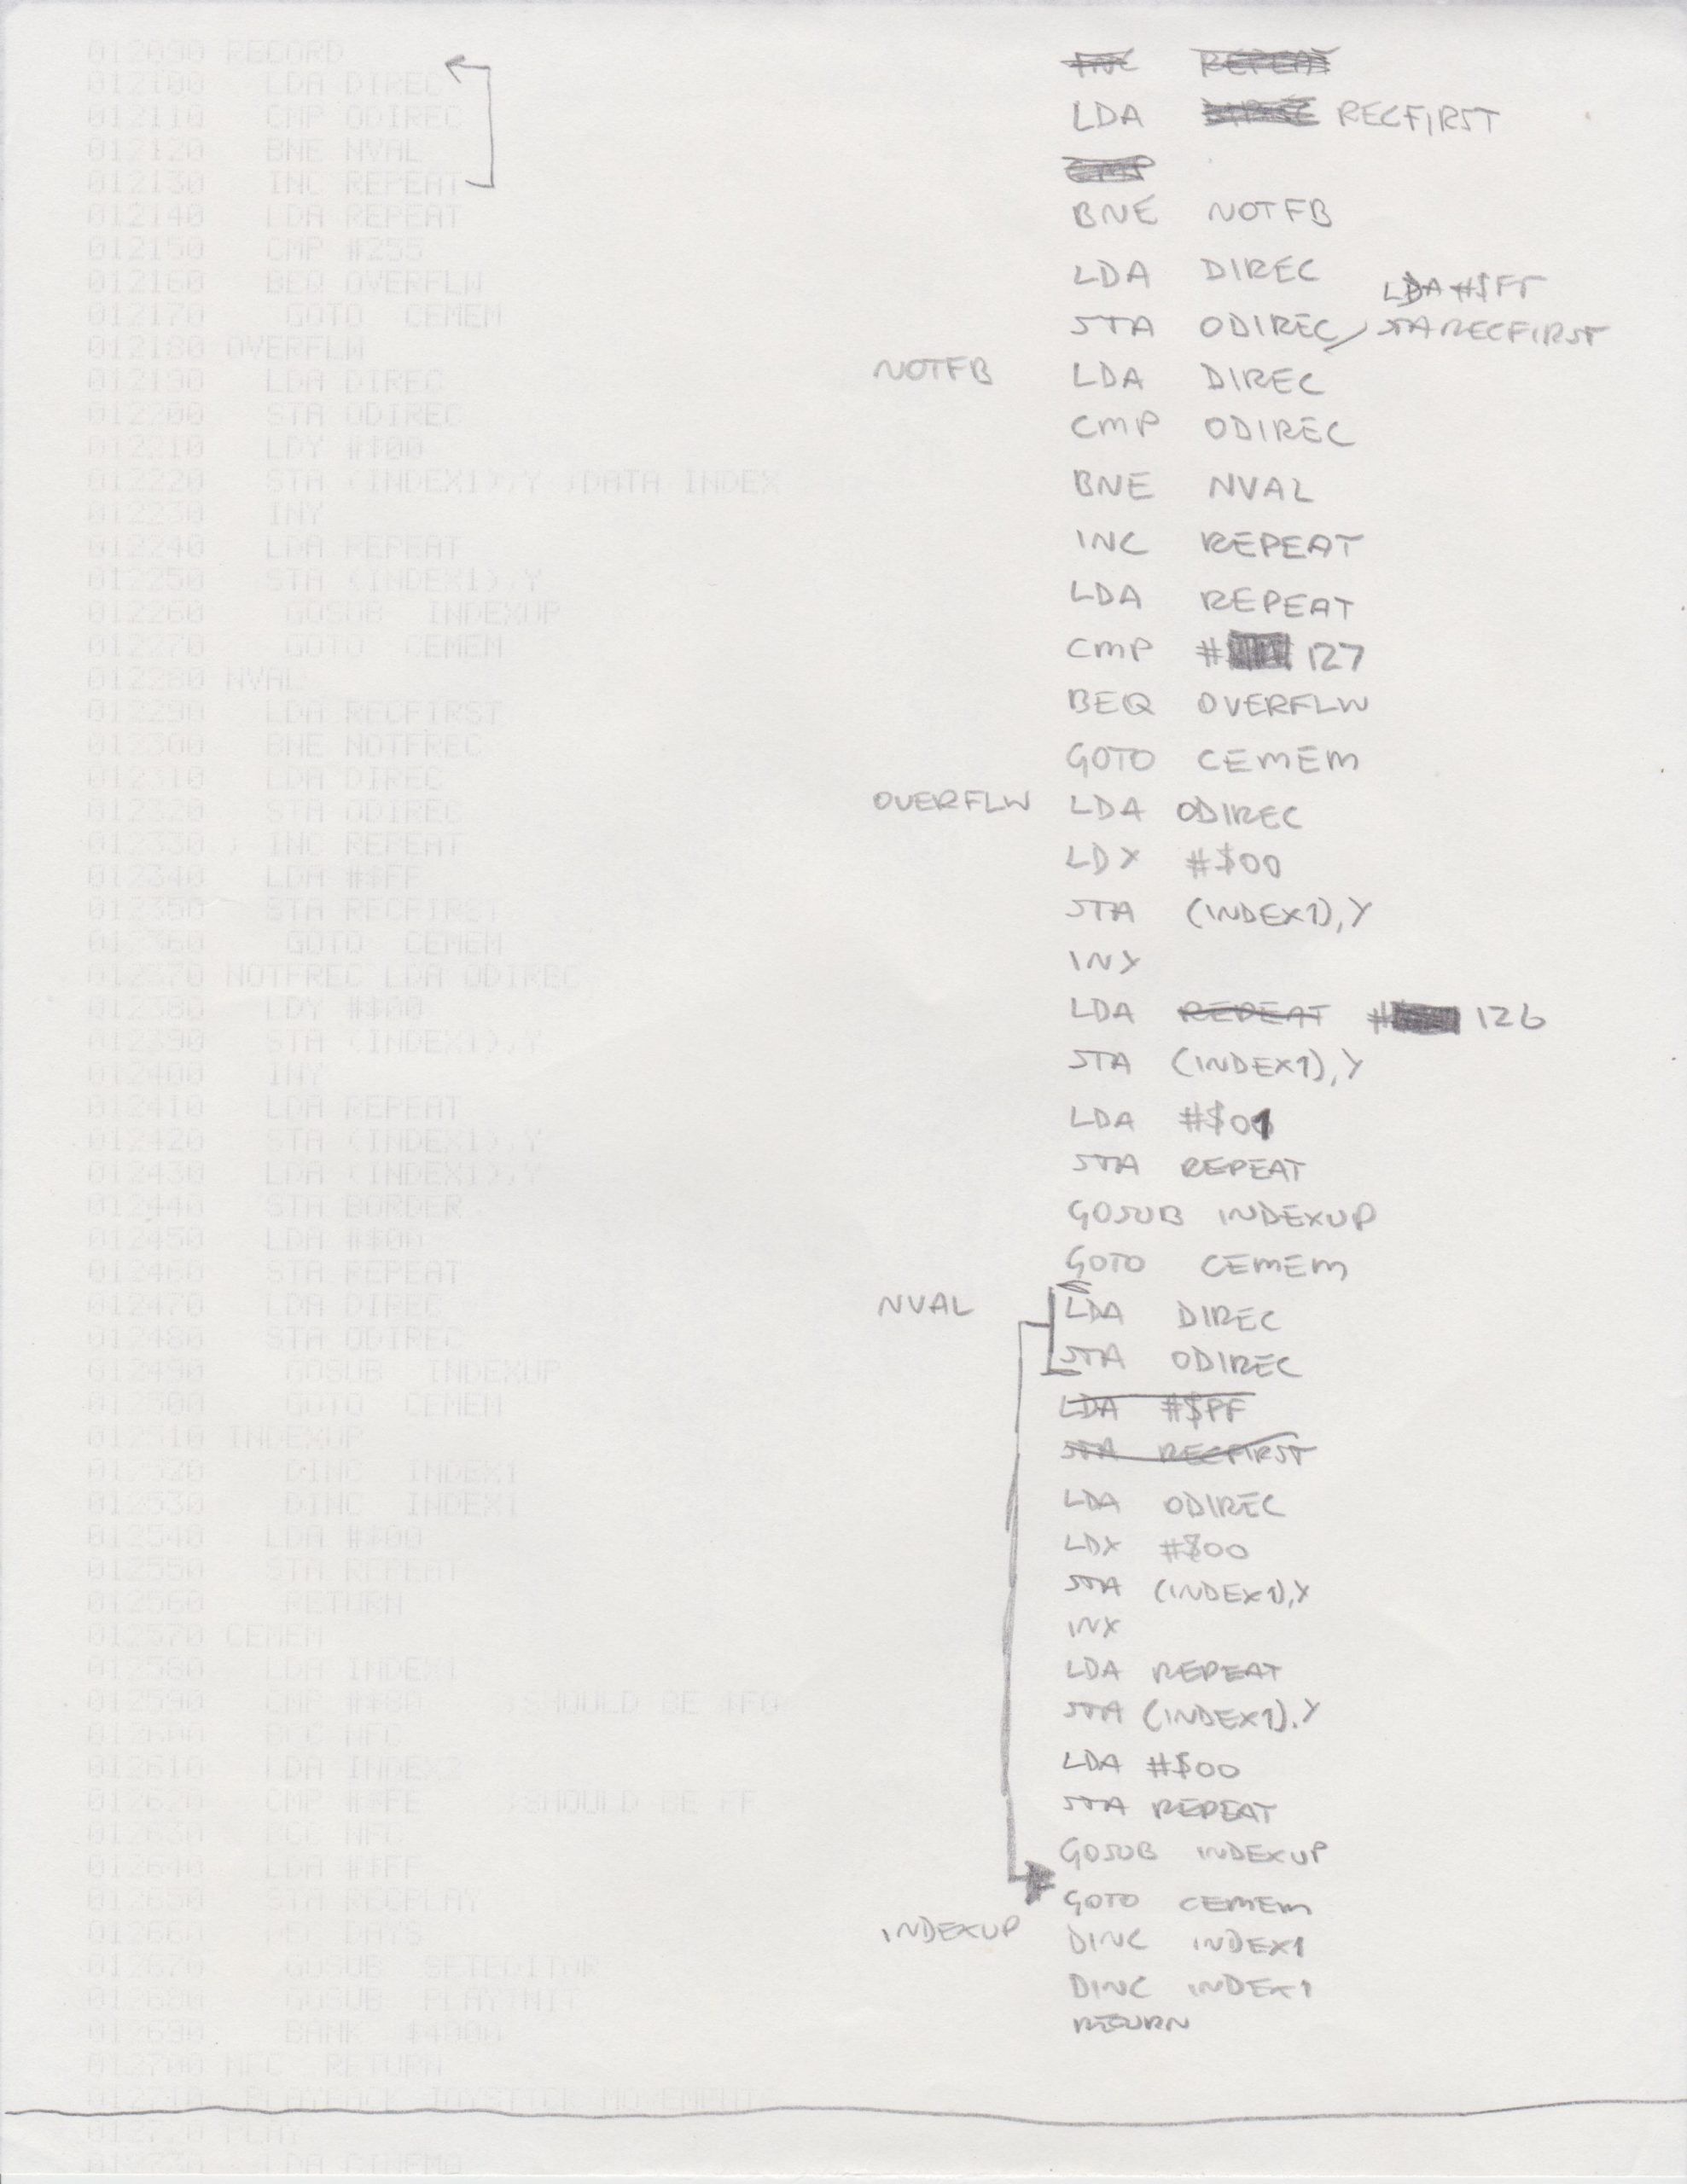 012090 RECORD
012100 LDA DIREC
012110 CMP ODIREC
012120 BNE NVAL
012130 INC REPEAT
012140 LDA REPEAT
012150 CMP #255
012160 BEQ OVERFLW
012170 GOTO CEMEM
012180 OVERFLW
012190 LDA DIREC
012200 STA ODIREC
012210 LDY #$00
012220 STA (INDEX1),Y ;DATA INDEX
012230 INY
012240 LDA REPEAT
012250 STA (INDEX1),Y
012260 GOSUB INDEXUP
012270 GOTO CEMEM
012280 NVAL
012290 LDA RECFIRST
012300 BNE NOTFREC
012310 LDA DIREC
012320 STA ODIREC
012330 ; INC REPEAT
012340 LDA #$FF
012350 STA RECFIRST
012360 GOTO CEMEM
012370 NOTFREC LDA ODIREC
012380 LDY #$00
012390 STA (INDEX1),Y
012400 INY
012410 LDA REPEAT
012420 STA (INDEX1),Y
012430 LDA (INDEX1),Y
012440 STA BORDER
012450 LDA #$00
012460 STA REPEAT
012470 LDA DIREC
012480 STA ODIREC
012490 GOSUB INDEXUP
012500 GOTO CEMEM
012510 INDEXUP
012520 DINC INDEX1
012530 DINC INDEX1
012540 LDA #$00
012550 STA REPEAT
012560 RETURN
012570 CEMEM
012580 LDA INDEX1
012590 CMP #$80 ;SHOULD BE $F0
012600 BCC NFC
012610 LDA INDEX2
012620 CMP #$FE ;SHOULD BE FF
012630 BCC NFC
012640 LDA #$FF
012650 STA RECPLAY
012660 DAYS
012670 GOSUB SETEDITOR
012680 GOSUB PLAYINIT
012690 BANK $4000
012700 NFC RETURN
012710 PLAYBACK JOYSTICK MOVEMENT
012720 PLAY
012730 LDA CINEMA
INC REPEAT
LDA RECFIRST
CMP
BNE NOTFB
LDA DIREC
LDA #$FF
STA ODIREC STA RECFIRST
NOTFB LDA DIREC
CMP ODIREC
BNE NVAL
INC REPEAT
LDA REPEAT
CMP # 127
BEQ OVERFLW
GOTO CEMEM
OVERFLW LDA ODIREC
LDX #$00
STA (INDEX1),Y
INX
LDA REPEAT # 126
STA (INDEX1),Y
LDA #$01
STA REPEAT
GOSUB INDEXUP
GOTO CEMEM
NVAL LDA DIREC
STA ODIREC
LDA #$FF
STA RECFIRST
LDA ODIREC
LDX #$00
STA (INDEX1),Y
INX
LDA REPEAT
STA (INDEX1),Y
LDA #$00
STA REPEAT
GOSUB INDEXUP
GOTO CEMEM
INDEXUP DINC INDEX1
DINC INDEX1
RETURN